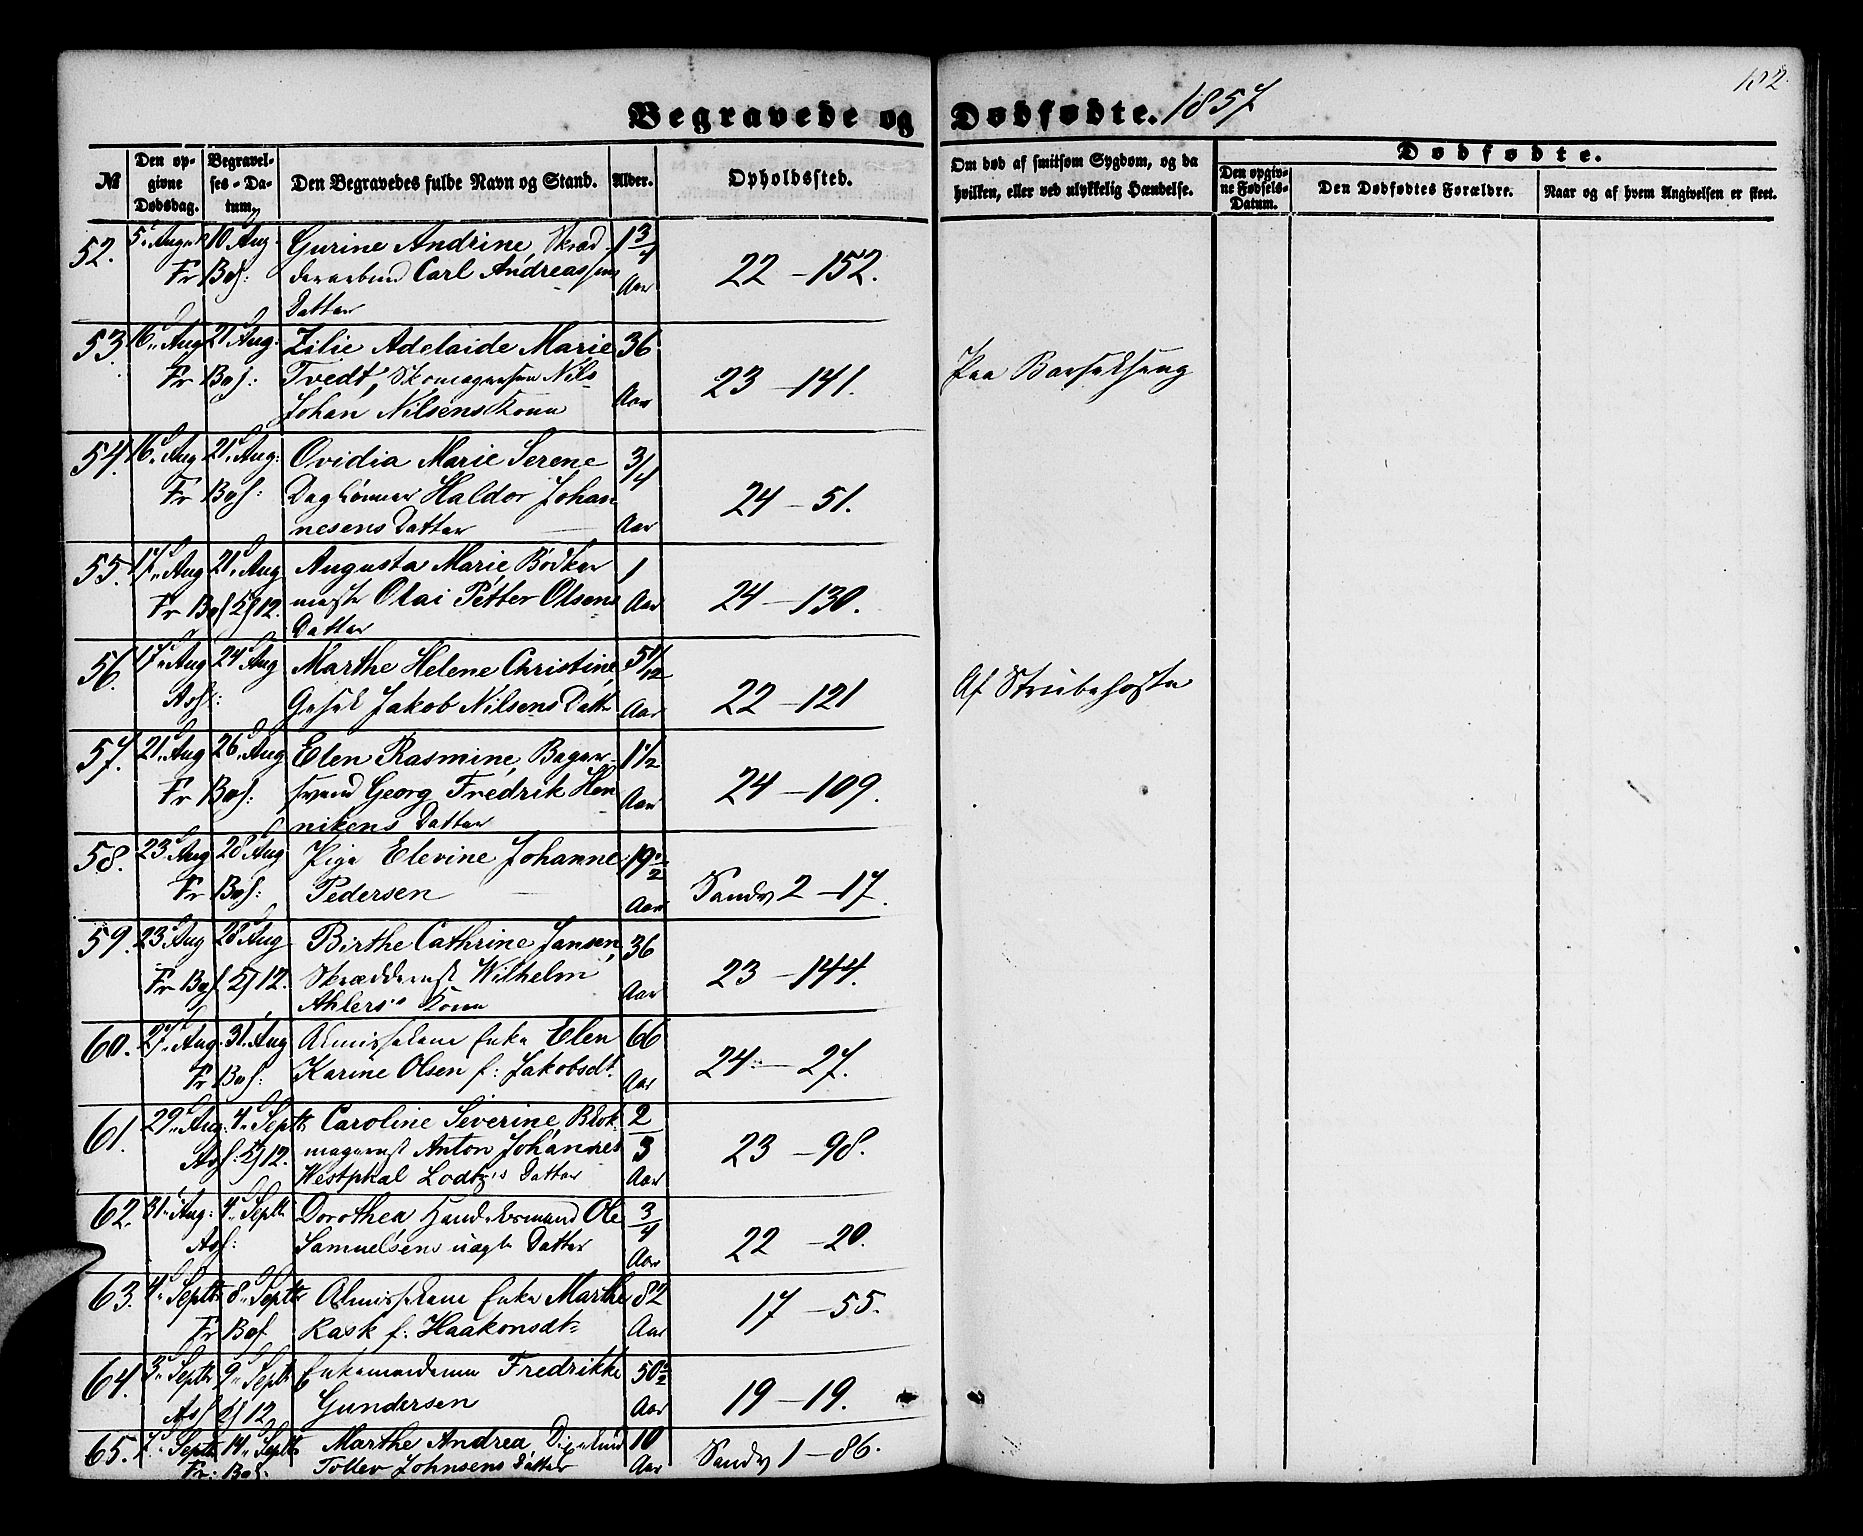 132.
Begravede og Dødfødte. 1857
№
Den opgivne Dødsdag.
Begravelses-Datum.
Den Begravedes fulde Navn og Stand.
Alder.
Opholdssted.
Om død af smitsom Sygdom, og da hvilken, eller ved ulykkelig Hændelse.
Dødfødte.
Den opgivne Fødsels-Datum.
Den Dødfødtes Forældre.
Naar og af hvem Angivelsen er skeet.
52. 5. August 10 Aug. Gurine Andrine, Skræd- 1 3/4
Fr Bos: Carl Andreassens Aar 22 - 152.
Datter
53. 16. Aug 21 Aug: Zilie Adelaide Marie 36
Fr Bos: Tvedt, Nils 23 - 141. Paa Barselseng
Johan Nilsens Kone Aar
54. 16. Aug 21. Aug: Ovidia Marie Serene 3/4
Fr Bos: Daglønner Haldor Johan 24 - 51.
nesens Datter Aar
55. 17. Aug 21. Aug Augusta Marie Bødker 1
Fr Bos 12. mester Olai Petter Olsens Aar 24 - 130.
Datter
56. 17. Aug 24 Aug Marthe Helene Christine,
Gesel Jakob Nilsens Datter Aar 22 - 121 Af Strubehoste
57. 21. Aug 26. Aug Elen Rasmine, Bager- 1 1/2
Fr Bos: svend Georg Fredrik Hen Aar 24 - 109.
nikens Datter
58. 23 Aug 28 Aug Pige Elevine Johanne 19 1/2
Fr Bos: Pedersen Aar Sandv 2 - 17.
59. 23 Aug 28 Aug Birthe Cathrine Jansen, 36
Fr Bos 12. Wilhelm 23 - 144.
Ahlers's Kone Aar
60. 27. Aug. 31. Aug Almisselem Enke Elen 66
Fr Bos: Karine Olsen f: Jakobsdt. Aar 24 - 27.
61. 29. Aug: 4. Septb Caroline Severine, Blok- 2/3
Ass: 12. magermst Anton Johannes 23 - 98.
Westphal Lodtz's Datter Aar
62. 31. Aug: 4. Septb Dorothea Handelsmand Ole 3/4
Ass: Samuelsens uægte Datter Aar 22 - 20.
63. 4. Septb 8. Septb Almisselem Enke Marthe 82
Fr Bos Rask f: Haakonsdt. Aar 17 - 55.
64. 3. Septb 9. Septb Enkemadame Fredrikke 50 1/2
Ass 12. Gundersen Aar 19 - 19.
65. 7. Septb 14. Septb Marthe Andrea, 10
Fr: Bos: Tollev Johnsens Datter Aar Sandv 1 - 86.